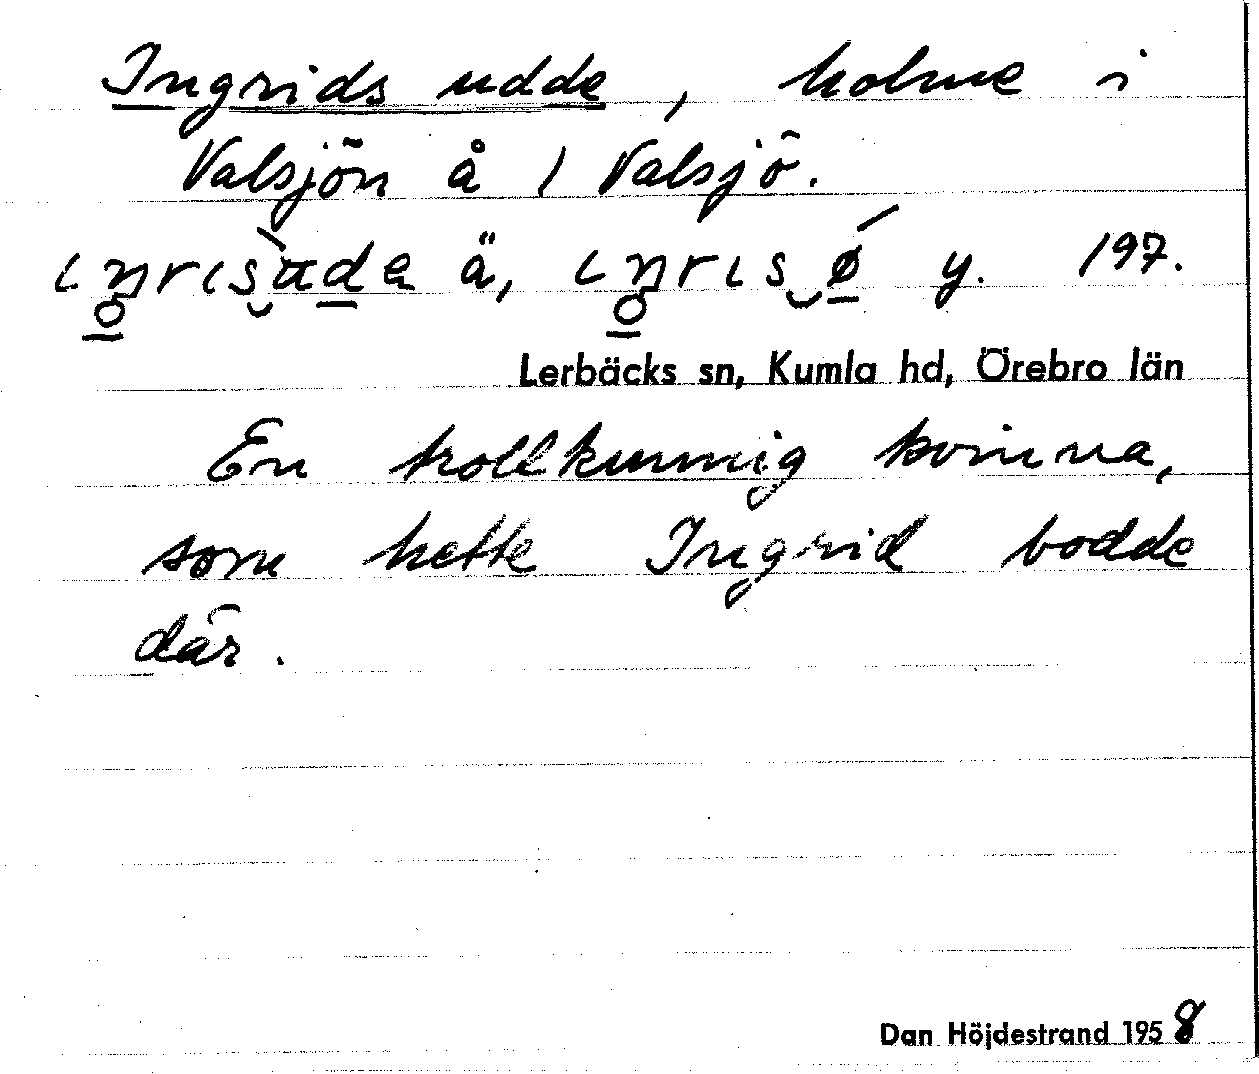 Ingrids udde, holme i
Valsjön å 1 Valsjö.
ä, y. 197.
Lerbäcks sn, Kumla hd, Örebro län
En trollkunnig kvinna,
som hette Ingrid bodde
där.
Dan Höjdestrand 1958